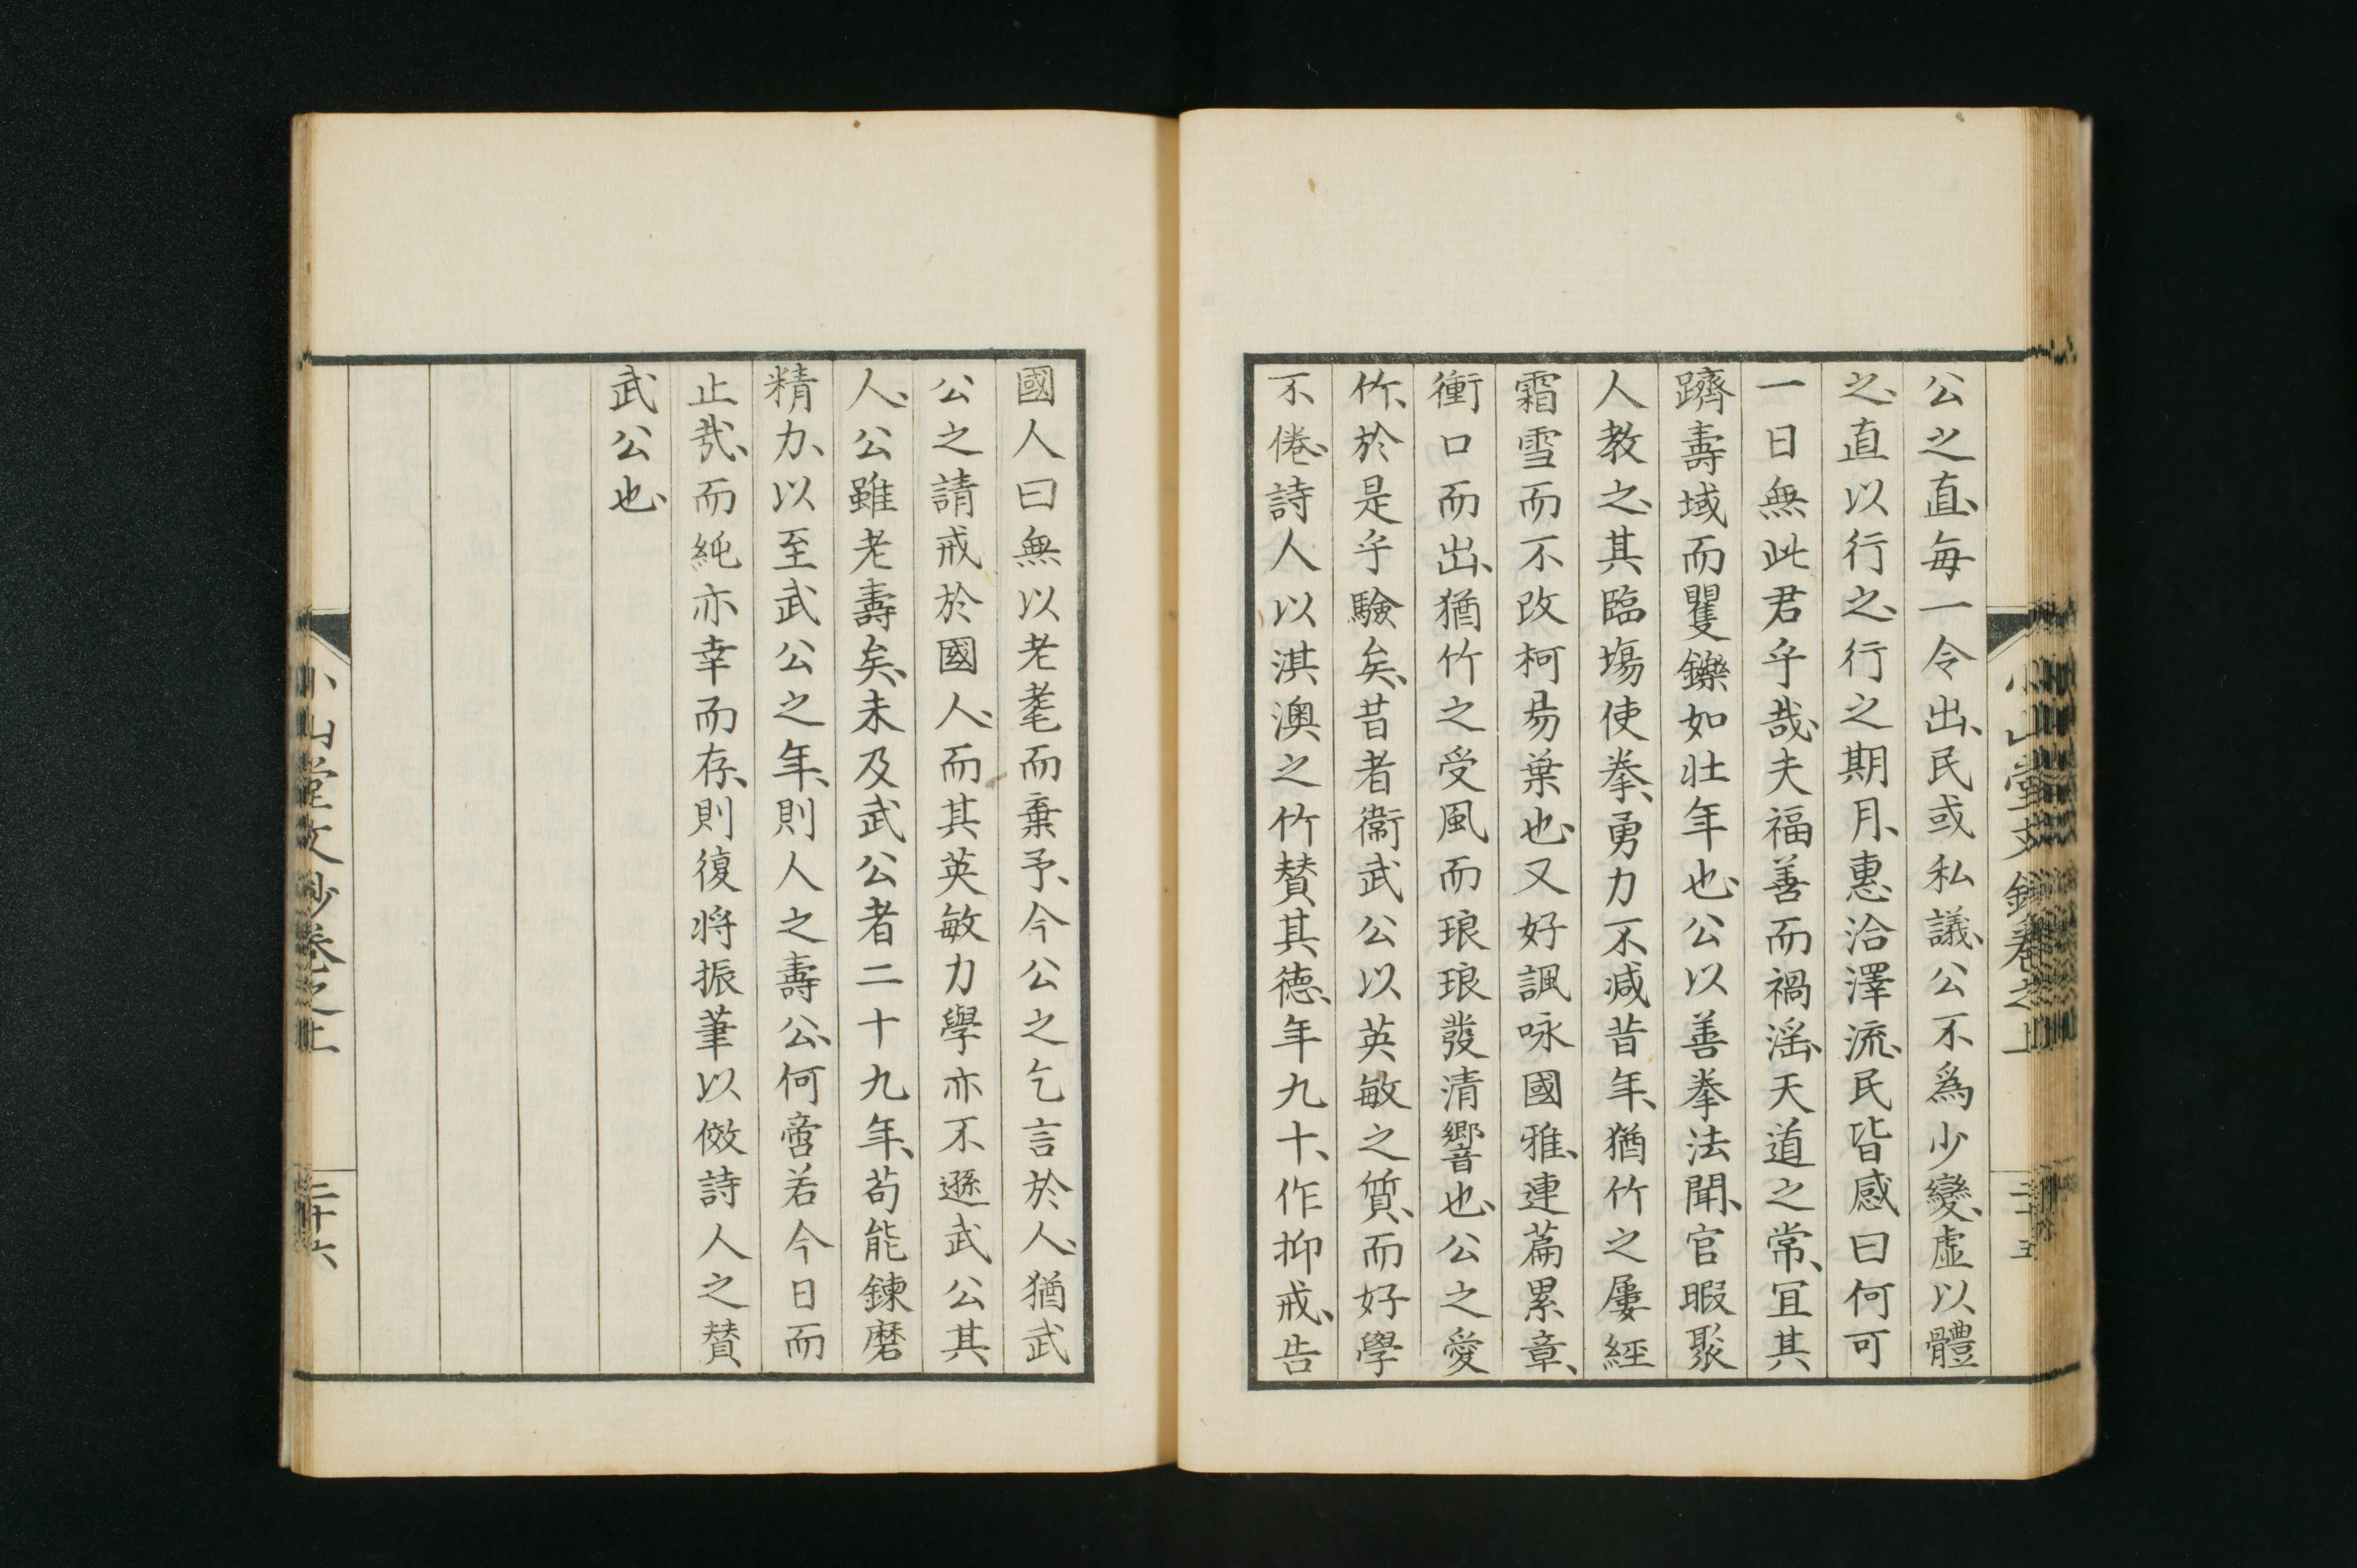 公之直、每一令出、民或私議、公不爲少變、虛以體
之、直以行之、行之期月、惠洽澤流、民皆感曰何可
一日無此君乎哉、夫福善而禍淫、天道之常、宜其
躋壽域而矍鑠如壯年也、公以善拳法聞、官暇聚
人教之、其臨塲使拳、勇力不减昔年、猶竹之屢經
霜雪而不改柯易葉也、又好諷咏國雅、連篇累章、
衝口而出、猶竹之受風而琅琅發清響也、公之愛
竹、於是乎驗矣、昔者衞武公以英敏之質、而好學
不倦、詩人以淇澳之竹賛其德、年九十、作抑戒、告
國人曰無以老耄而棄予、今公之乞言於人、猶武
公之請戒於國人、而其英敏力學亦不遜武公其
人、公雖老壽矣、未及武公者二十九年、苟能鍊磨
精力、以至武公之年、則人之壽公、何啻若今日而
止哉、而純亦幸而存、則復將振筆以傚詩人之賛
武公也、
小山堂文鈔卷之上
二十五
小山堂文鈔卷之上
二十六